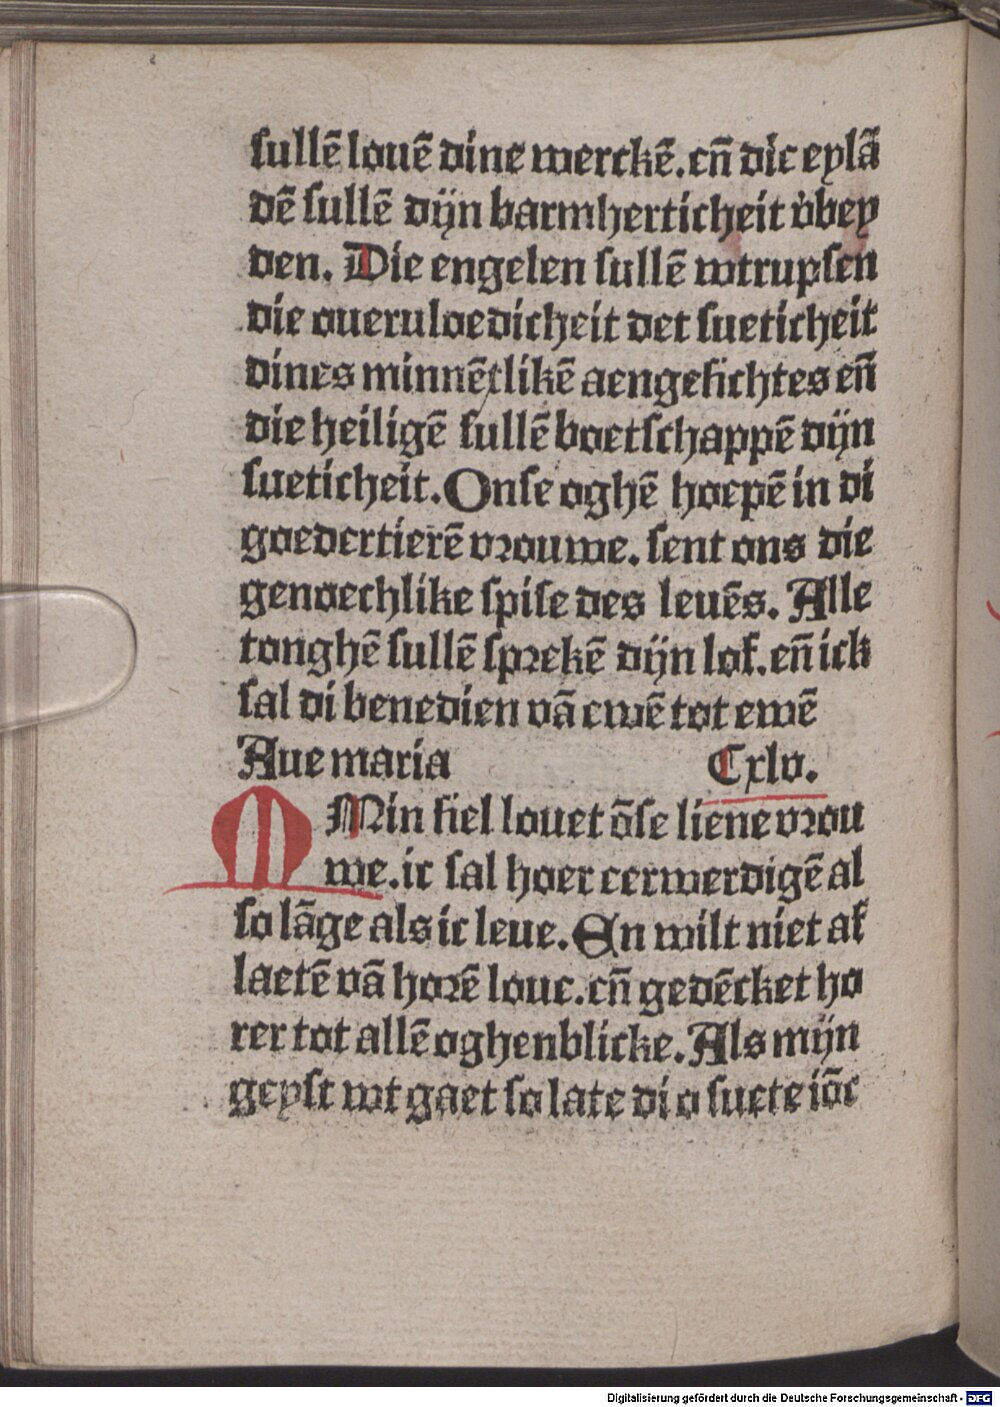 sullē louē dine werckē. en̄ dic eylā
dē sullē dijn barmherticheit v̓bey
den. Die engelen sullē wtrupsen
die oueruloedicheit det sueticheit
dines minnētlikē aengesichtes en̄
die heiligē sullē boetschappē dijn
sueticheit. Onse oghē hoepē in di
goedertierē vrouwe. sent ons die
genoechlike spise des leuēs. Alle
tonghē sullē sprekē dijn lof. en̄ ick
sal di benedien vā ewē tot ewē
Aue maria Cxlv.
M Min siel louet ōse lieue vrou
we. ic sal hoer eerwerdigē al
so lāge als ic leue. En wilt niet af
laetē vā horē loue. en̄ gedēcket ho
rer tot allē oghenblicke. Als mijn
geyst wt gaet so late di o suete iōc
Digitalisierung gefördert durch die Deutsche Forschungsgemeinschaft - DFG